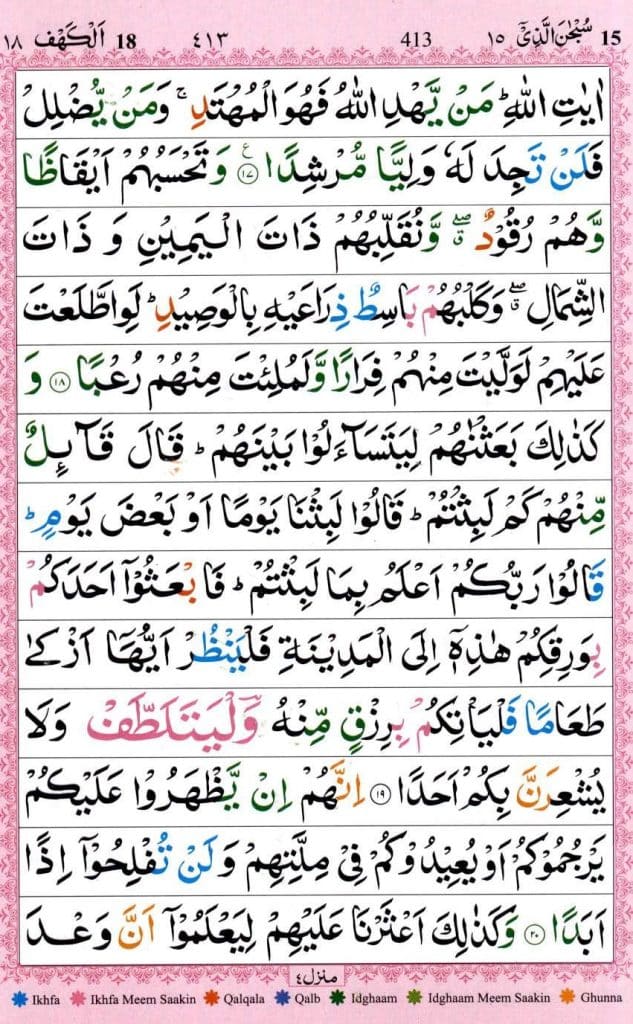 15 سُبْحٰنَ الَّذِیْۤ ۱۵ 413 ٤١٣ 18 اَلْكَهْف ۱۸
اٰیٰتِ اللّٰهِ ؕ مَنْ یَّهْدِ اللّٰهُ فَهُوَ الْمُهْتَدِ ۚ وَمَنْ یُّضْلِلْ
فَلَنْ تَجِدَ لَهٗ وَلِیًّا مُّرْشِدًا ۧ‏﴿۱۷﴾ وَتَحْسَبُهُمْ اَیْقَاظًا
وَّهُمْ رُقُوْدٌ ۖۗ وَّنُقَلِّبُهُمْ ذَاتَ الْیَمِیْنِ وَ ذَاتَ
الشِّمَالِ ۖۗ وَكَلْبُهُمْ بَاسِطٌ ذِرَاعَیْهِ بِالْوَصِیْدِ ؕ لَوِاطَّلَعْتَ
عَلَیْهِمْ لَوَلَّیْتَ مِنْهُمْ فِرَارًا وَّلَمُلِئْتَ مِنْهُمْ رُعْبًا ﴿۱۸﴾ وَ
كَذٰلِكَ بَعَثْنٰهُمْ لِیَتَسَآءَلُوْا بَیْنَهُمْ ؕ قَالَ قَآىِٕلٌ
مِّنْهُمْ كَمْ لَبِثْتُمْ ؕ قَالُوْا لَبِثْنَا یَوْمًا اَوْ بَعْضَ یَوْمٍ ؕ
قَالُوْا رَبُّكُمْ اَعْلَمُ بِمَا لَبِثْتُمْ ؕ فَابْعَثُوْۤا اَحَدَكُمْ
بِوَرِقِكُمْ هٰذِهٖۤ اِلَی الْمَدِیْنَةِ فَلْیَنْظُرْ اَیُّهَاۤ اَزْكٰی
طَعَامًا فَلْیَاْتِكُمْ بِرِزْقٍ مِّنْهُ وَلْیَتَلَطَّفْ وَلَا
یُشْعِرَنَّ بِكُمْ اَحَدًا ﴿۱۹﴾ اِنَّهُمْ اِنْ یَّظْهَرُوْا عَلَیْكُمْ
یَرْجُمُوْكُمْ اَوْ یُعِیْدُوْكُمْ فِیْ مِلَّتِهِمْ وَلَنْ تُفْلِحُوْۤا اِذًا
اَبَدًا ﴿۲۰﴾ وَكَذٰلِكَ اَعْثَرْنَا عَلَیْهِمْ لِیَعْلَمُوْۤا اَنَّ وَعْدَ
منزل ٤
Ikhfa Ikhfa Meem Saakin Qalqala Qalb Idghaam Idghaam Meem Saakin Ghunna